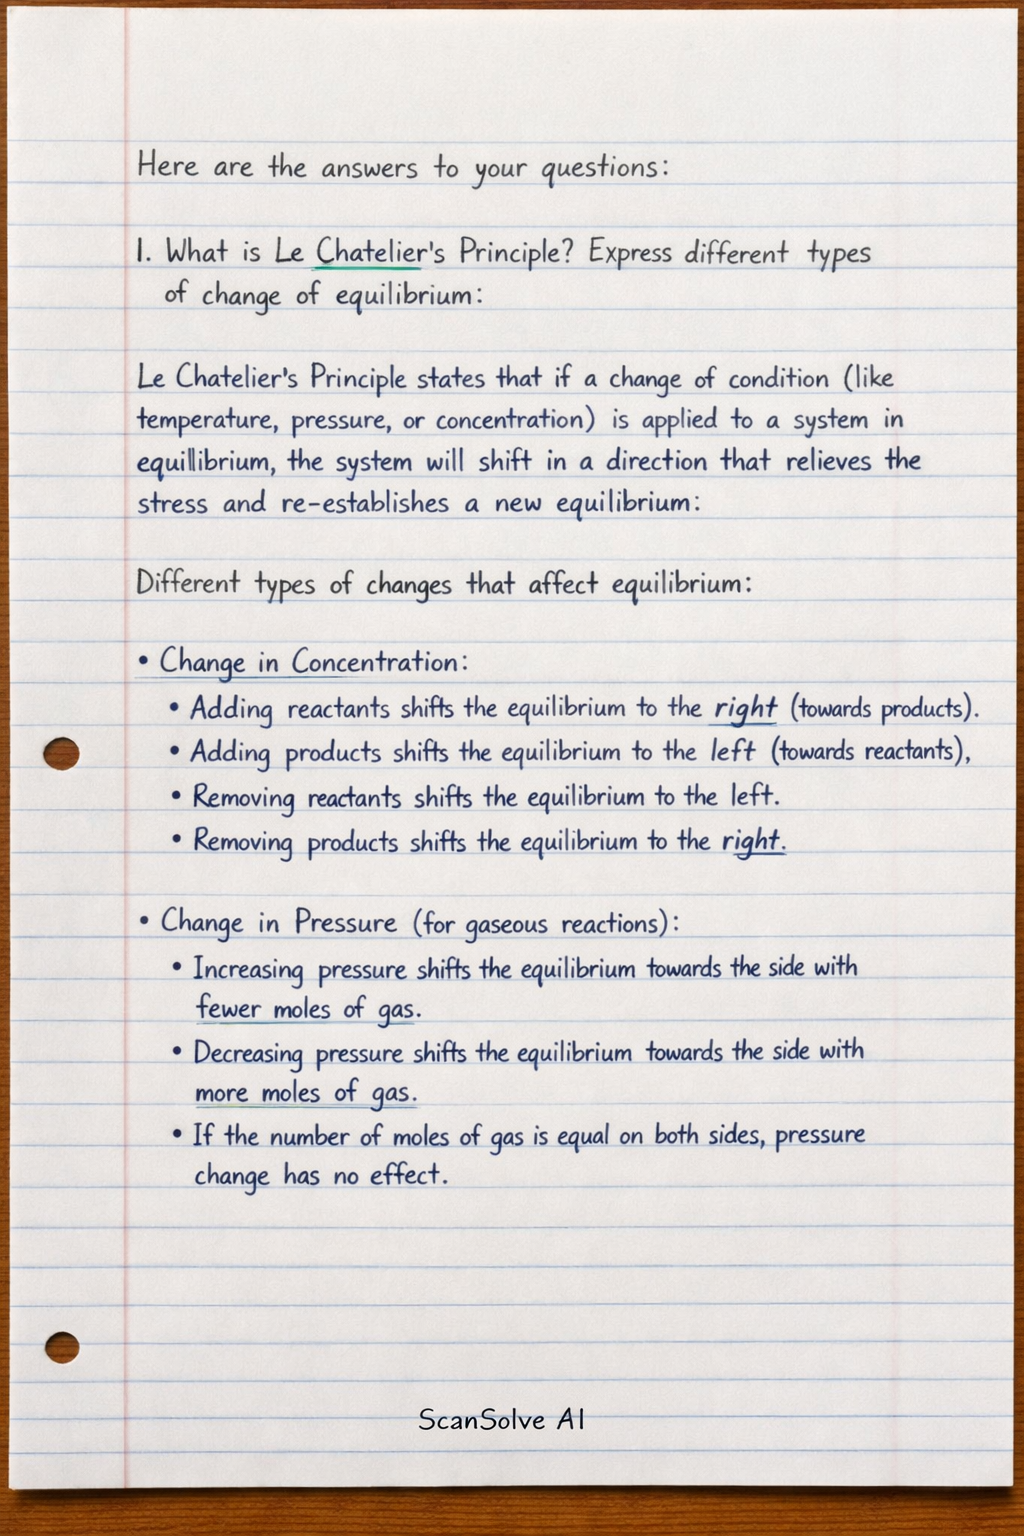 Here are the answers to your questions:
1. What is Le Chatelier's Principle? Express different types
of change of equilibrium:
Le Chatelier's Principle states that if a change of condition (like
temperature, pressure, or concentration) is applied to a system in
equilibrium, the system will shift in a direction that relieves the
stress and re-establishes a new equilibrium:
Different types of changes that affect equilibrium:
• Change in Concentration:
• Adding reactants shifts the equilibrium to the right (towards products).
• Adding products shifts the equilibrium to the left (towards reactants),
• Removing reactants shifts the equilibrium to the left.
• Removing products shifts the equilibrium to the right.
• Change in Pressure (for gaseous reactions):
• Increasing pressure shifts the equilibrium towards the side with
fewer moles of gas.
• Decreasing pressure shifts the equilibrium towards the side with
more moles of gas.
• If the number of moles of gas is equal on both sides, pressure
change has no effect.
ScanSolve AI